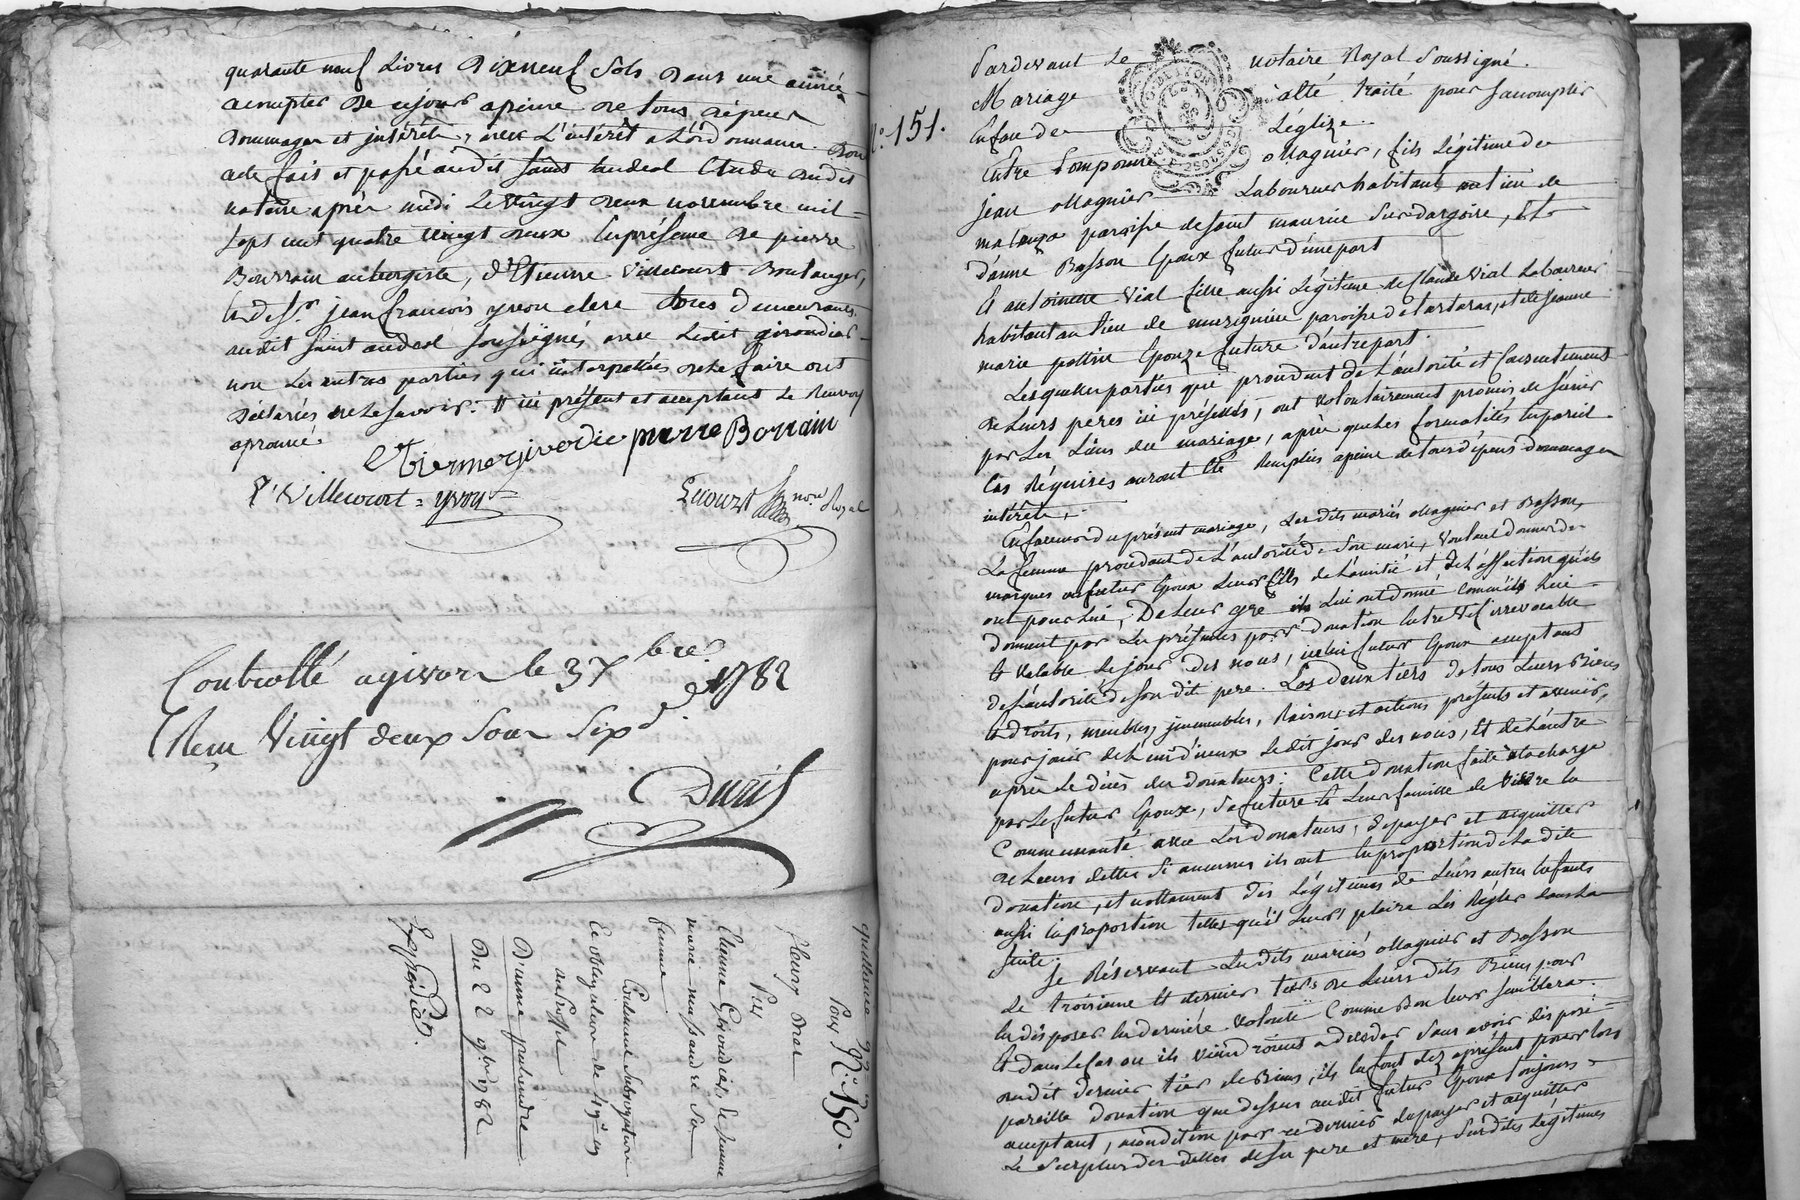 quarante neuf Livres Dixneuf Sols Dans une année
acompter de cejour apeine de tous dépens
Dommages et intérêts, avec L'intérêt a Lordonnance. Dont
acte fait et passé audit Saint andeol Etude dudit
notaire après midi Le vingt deux novembre mil
Sept cent quatre vingt deux En présence de pierre
Bourrain aubergiste, d'Etienne Villecourt Boulanger,
Et de Sr. jean francois yvon clerc tous demeurants
audit Saint andeol Soussignés avec Ledit girondier
non Les autres parties qui interpellées de le faire ont
Déclarées ne Le Savoir. # ici présent et acceptant Le Renvoy
aprouvé
pierre Borrain
E. Villecourt = yvon
Lecourt nore. Royal
Controllé a givors le 3 Xbre. 1782
Reçu Vingt deux Sous Six d.
Duril
quittance
N.o 150.
Pour
fleury
Par
Etienne Girondier Le jeune
marie
femme
Contenant Subrogation
Et obligation de 49# 19s
au Profit de
Du 22 9bre 1782
Expédiée.
N.o 151.
Pardevant Le notaire Royal Soussigné.
Mariage a été traité pour S'acomplir
En face de Léglize
Entre pomponne Magnier, fils Légitime de
Jean Magnier Laboureur habitant au lieu de
paroisse de Saint maurice Sur dargoire, Et
d'anne Basson Epoux futur d'une part
Et antoinette Vial fille aussi Légitime de Claude Vial Laboureur
habitant au lieu de paroisse de tartaras, et de jeanne
marie pottin Epouze future d'autre part.
Lesquelles parties qui procedent de L'autorité et Consentement
de Leurs peres ici présents, ont volontairement promis de S'unir
par Les Liens du mariage, après que les formalités En pareil
Cas Réquises auront été Remplies apeine de tous dépens dommages
intérêts.
En faveur du présent mariage, Les dits mariés Magnier et Basson,
La femme procedant de L'autorité de Son mari, voulant donner des
marques au futur Epoux Leur fils de L'amitié et de L'affection qu'ils
ont pour Lui, De Leur gré ils Lui ont donné comme ils Lui
donnent par Les présentes par donation Entre Vif irrevocable
Et Valable Le jour des noces, icelui futur Epoux acceptant
de L'autorité de Son dit pere. Les deux tiers de tous Leurs Biens
Et droits, meubles, immeubles, Raisons et actions présents et avenir,
pour jouir de L'un d'iceux Le dit jour des noces, Et de L'autre
après Le décès des donateurs. Cette donation faite à la charge
par Le futur Epoux, Sa future Et Leur famille de Vivre En
Communauté avec Les Donateurs, De payer et acquitter
de Leurs dettes Si aucunes ils ont En proportion de La dite
donation, et nottament Des Légitimes de Leurs autres Enfants
aussi En proportion telles qu'il Leurs plaira Les Régler dans La
Suite.
Se Réservant Les dits mariés Magnier et Basson
Le troisieme Et dernier tiers de Leurs dits Biens pour
En disposer En derniére Volonté Comme Bon leur Semblera.
Et dans Le Cas ou ils viendroient a deceder Sans avoir disposé
dudit dernier tier de Biens, ils En font dez apresent pour lors
pareille donation que dessus audit futur Epoux toujours
acceptant, acondition par ce dernier de payer et acquitter
Le Surplus des dettes de Ses pere et mere, Susdites Légitimes